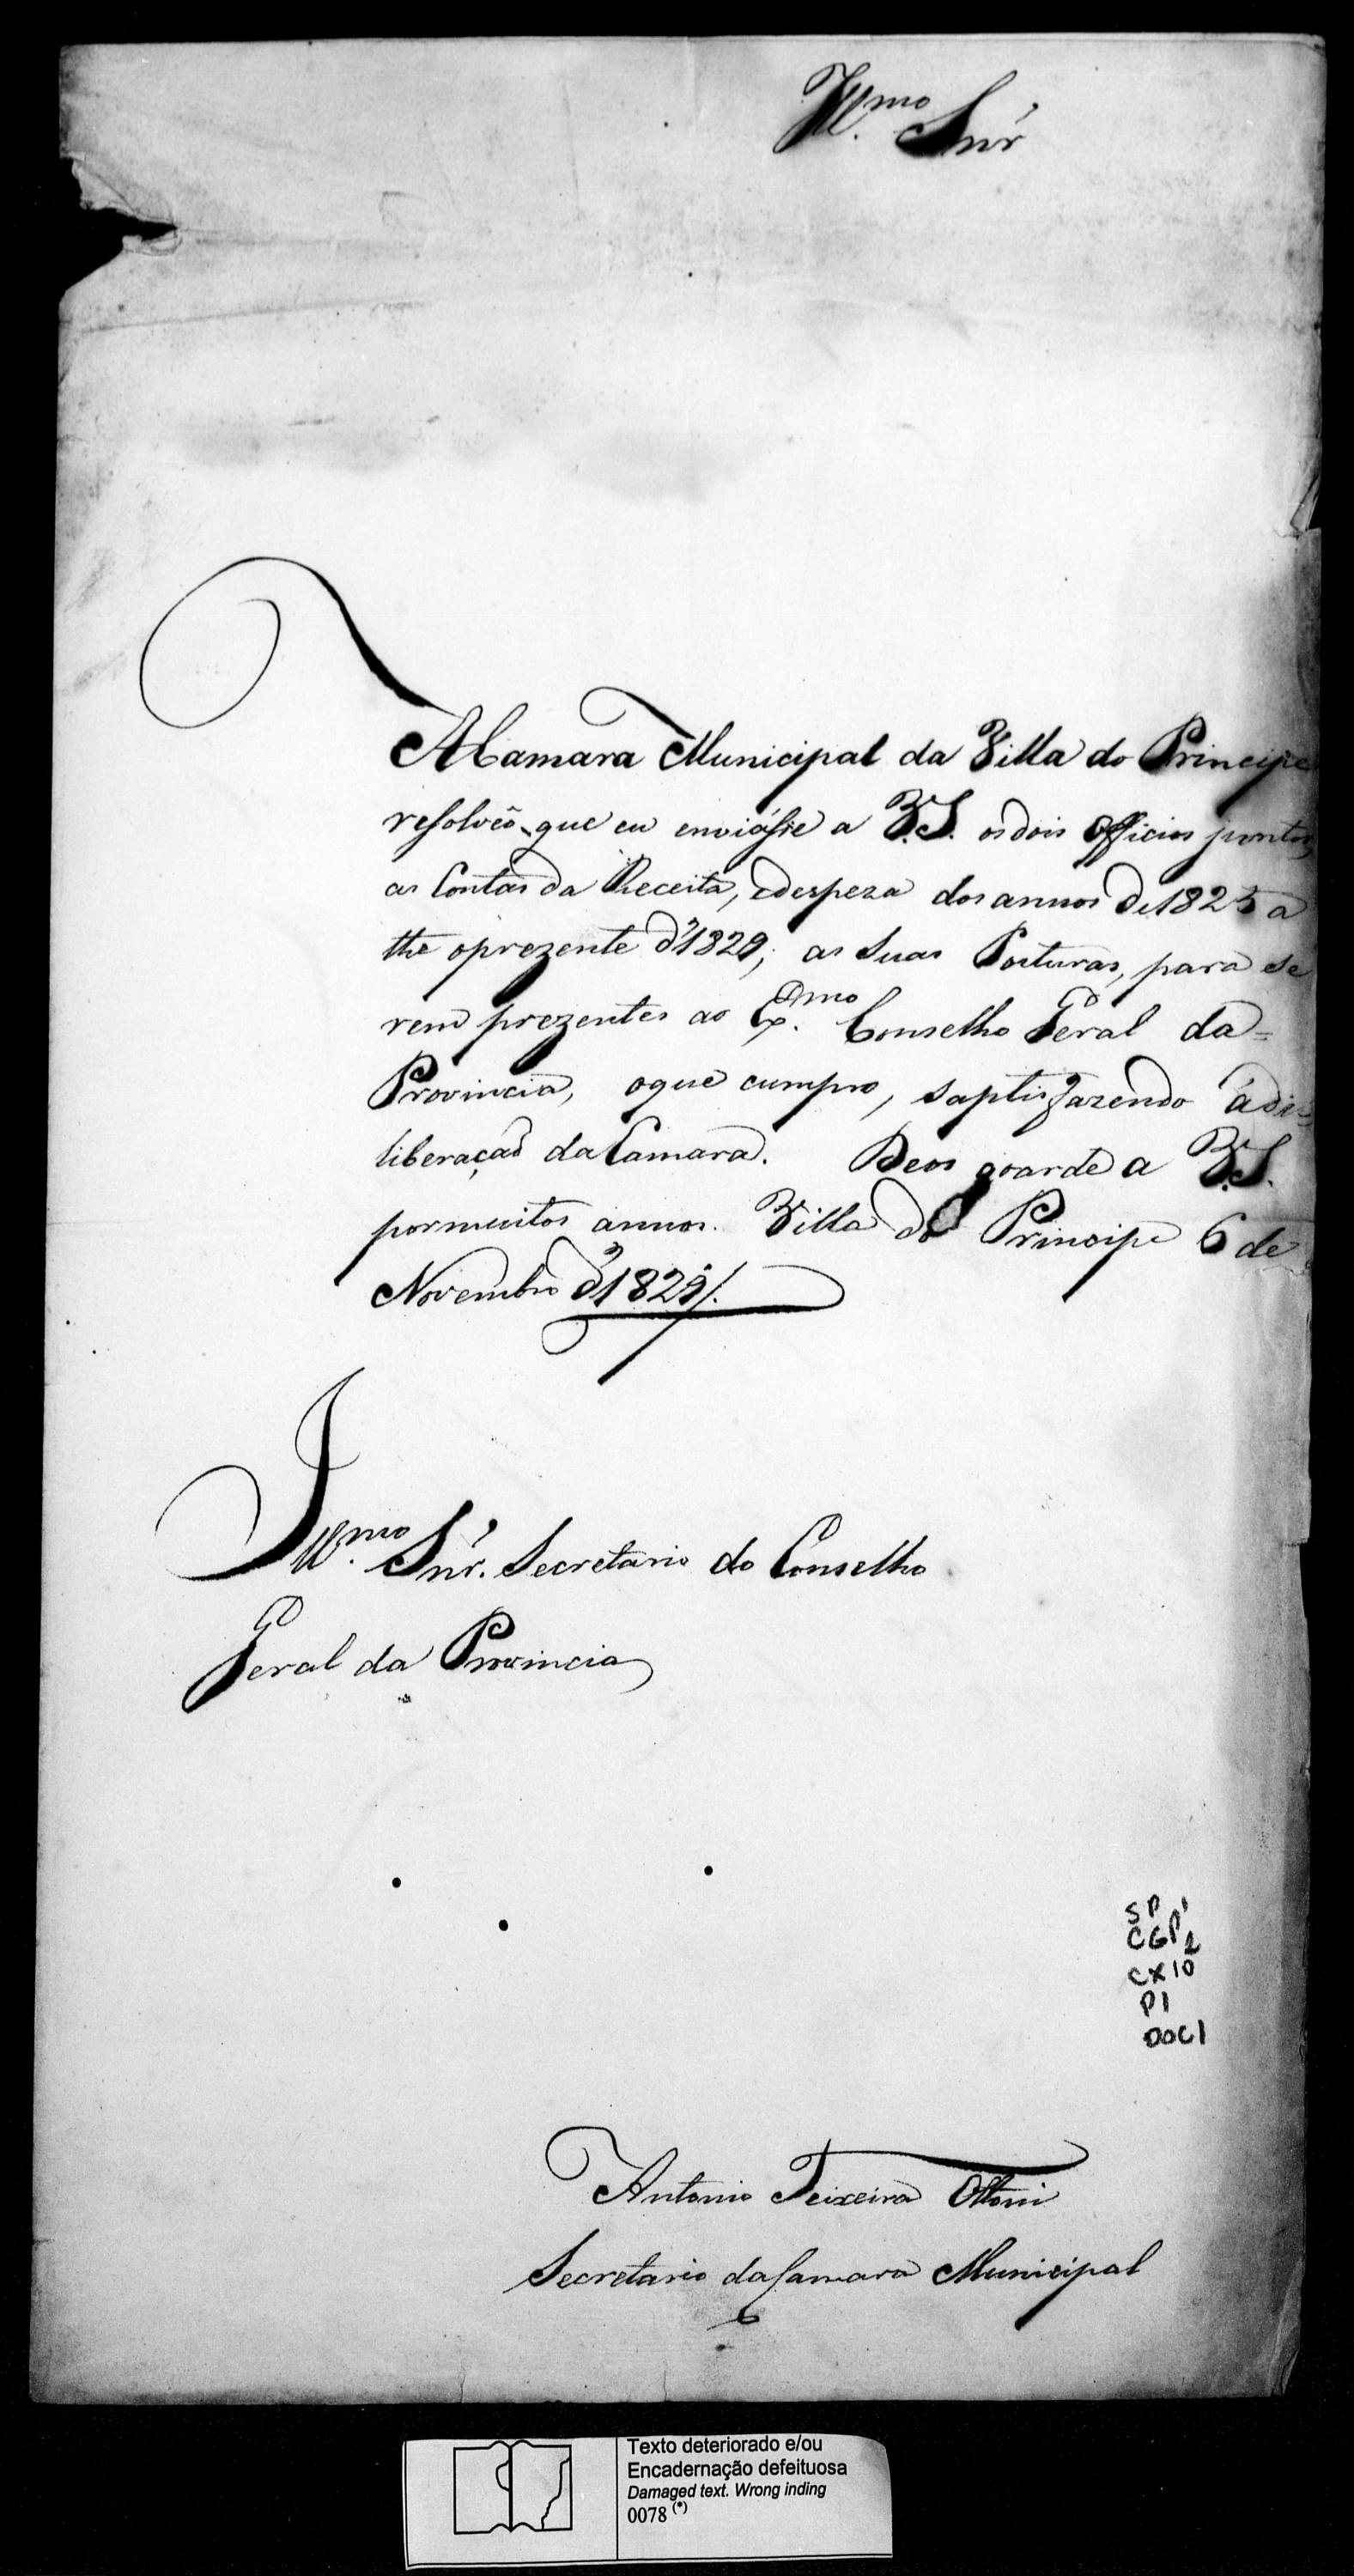 Ill.mo Snr'
A Camara Municipal da Villa do Principe
resolvêo que eu enviásse a V.S. os dois Officios juntos,
as Contas da Receita, edespeza dos annos de 1825 a
the oprezente d'1829; as suas Posturas, para se
rem prezentes ao Ex.mo Conselho Geral da=
Provincia, oque cumpro, saptisfazendo ádi=
liberaçaõ da Camara. Deos goarde a V.S.
pormuitos annos. Villa do Principe 6 de
Novembro d'1829/.
Ill.mo Snr'. Secretario do Conselho
Geral da Provincia
SP
CGP1 2
CX10
P1
DOC1
Antonio Teixeira Ottoni
Secretario da Camara Municipal
Texto deteriorado e/ou
Encadernação defeituosa
Damaged text. Wrong inding
0078 (*)